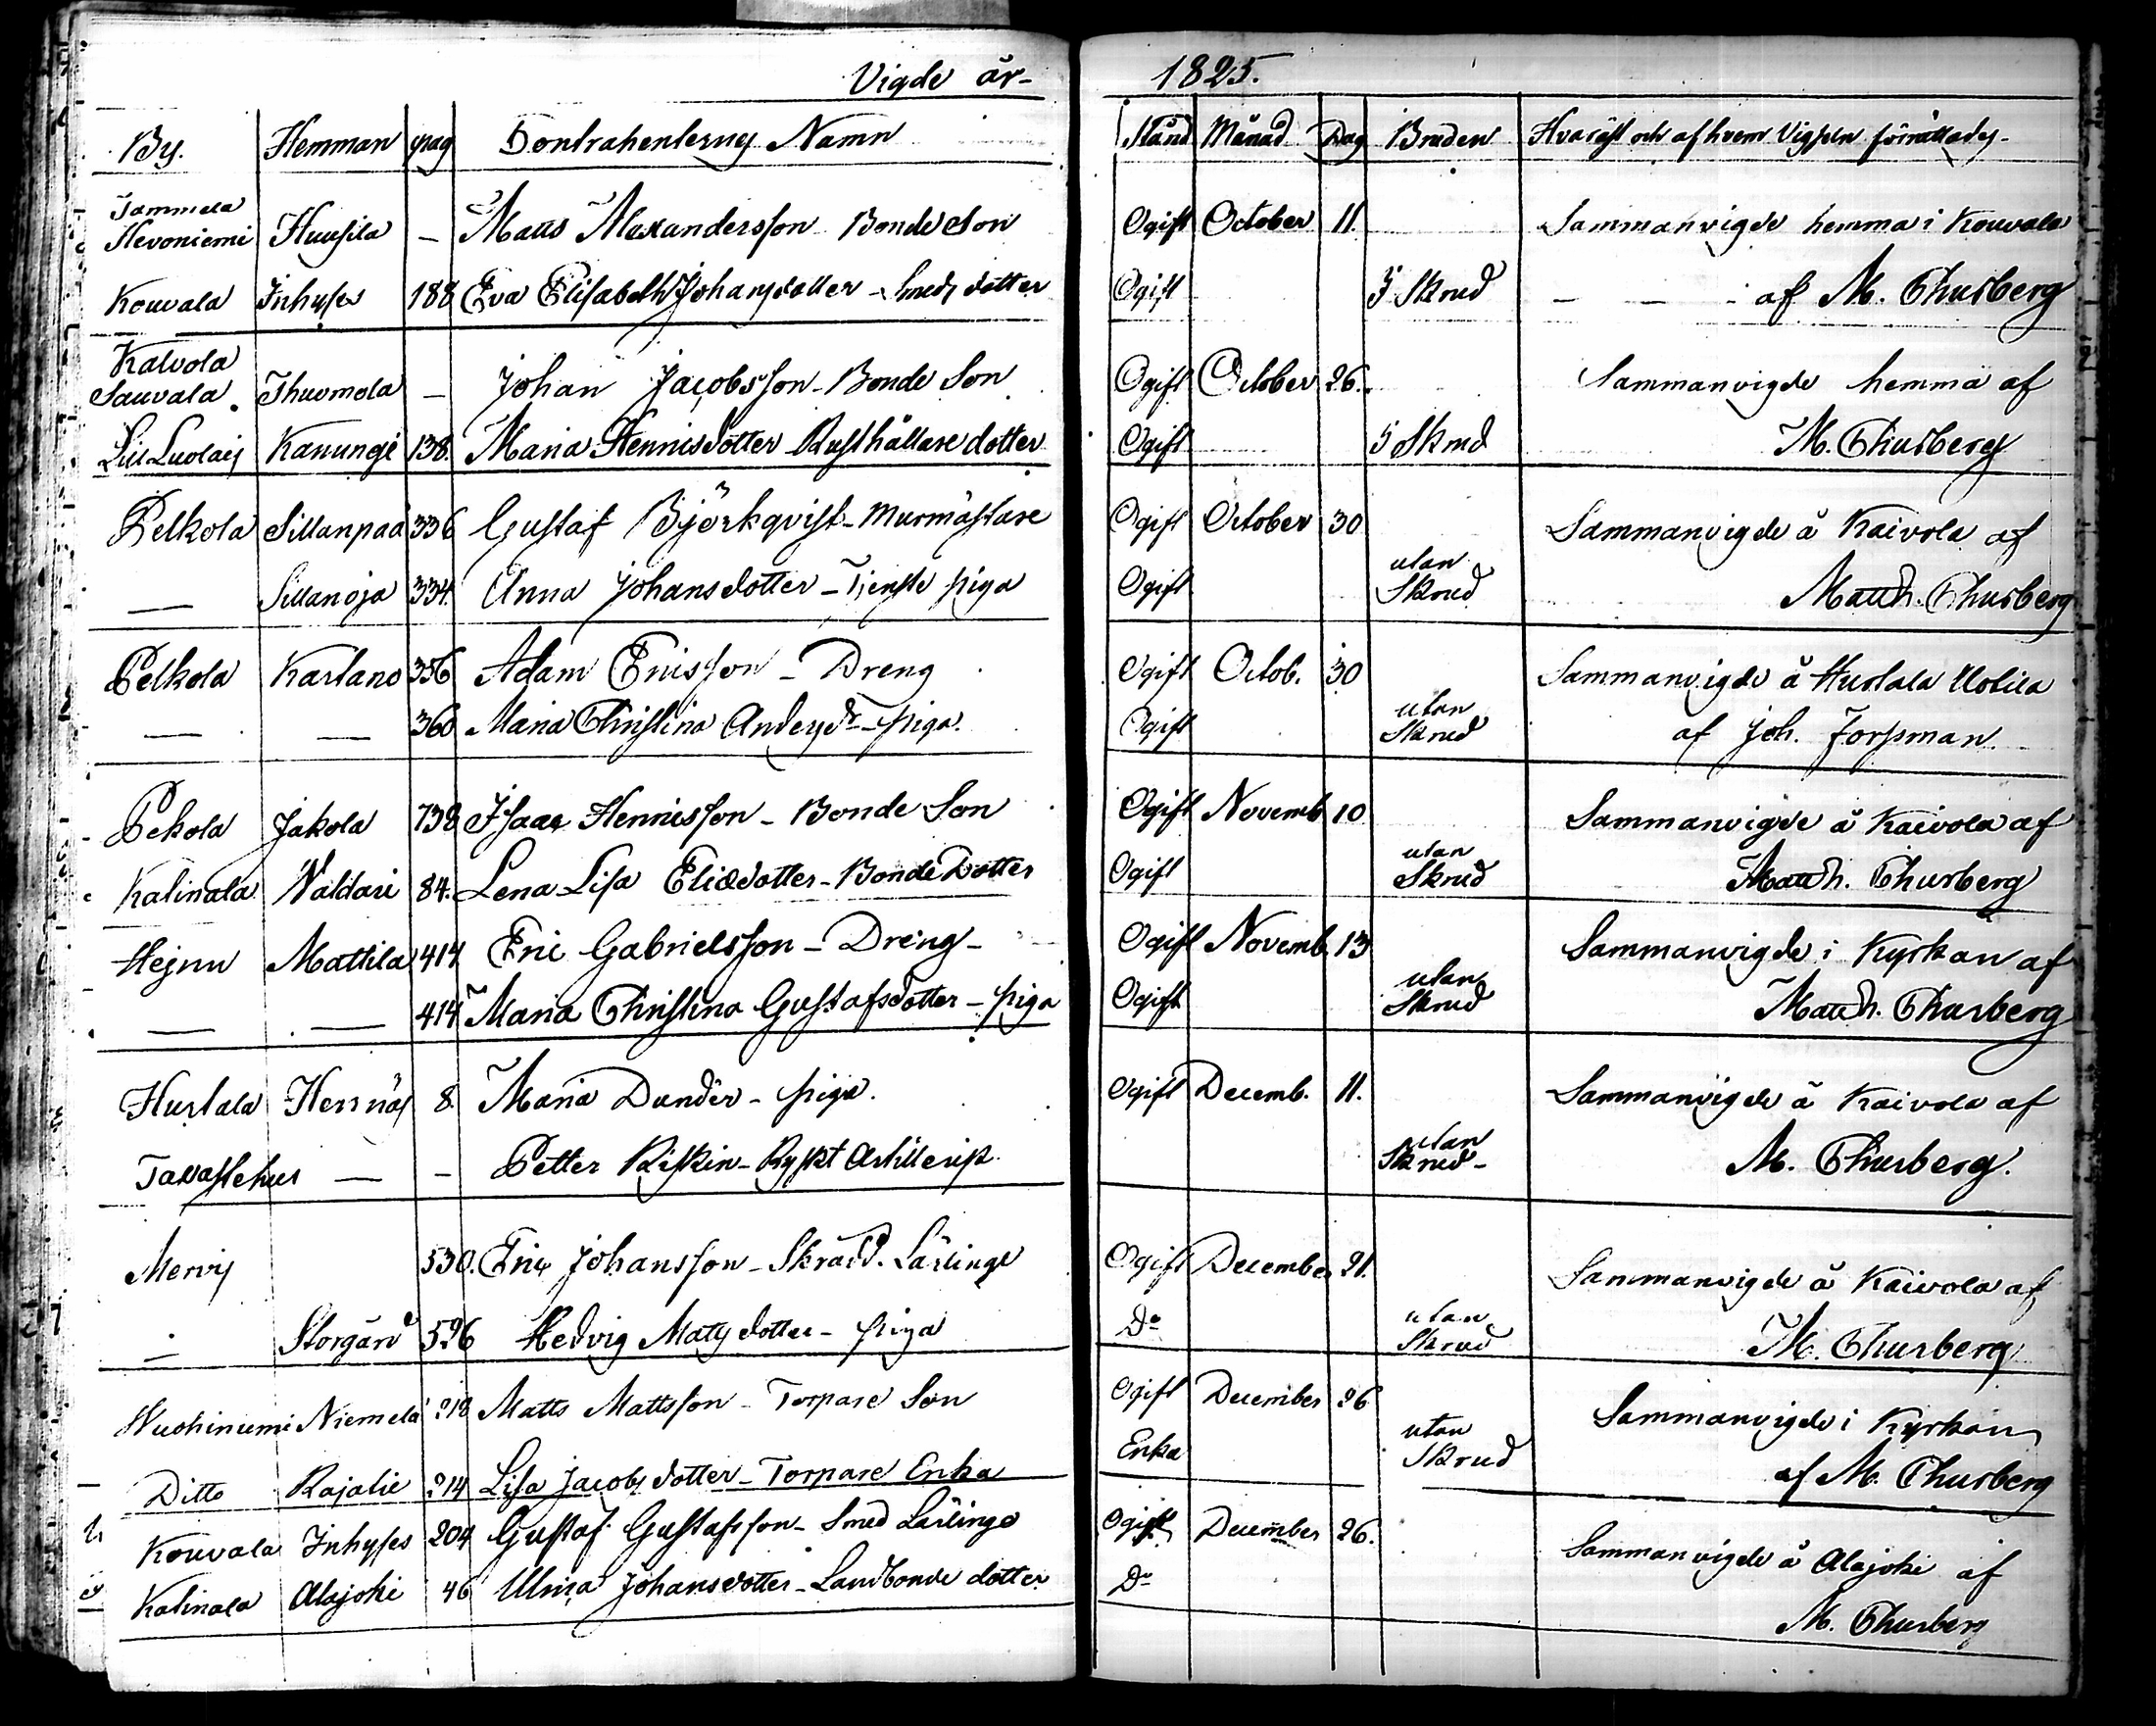 Vigde år 1825.
By. Hemman pag Contrahenternes Namn Stånd Månad Dag Bruden Hvarest och af hvem Vigseln förrättades
Tammela
Hevoniemi Huusila — Matts Alexandersson Bonde Son Ogift October 11. Sammanvigde hemma i Kouvala
Kouvala Inhyses 188 Eva Elisabeth Johansdotter - Smeds dotter Ogift i Skrud — — af M. Churberg
Kalvola
Sauvala Thuomola — Johan Jacobsson - Bonde Son Ogift October 26. Sammanvigde hemma af
Lill Luolais Kanungi 138. Maria Hennisdotter Rusthållare dotter Ogift i Skrud M. Churberg
Pelkola Sillanpää 336 Gustaf Björkqvist - Murmästare Ogift October 30 Sammanvigde å Kaivola af
— Sillanoja 334. Anna Johansdotter - Tjenste piga Ogift utan Skrud Matth. Churberg
Pelkola Karlano 356 Adam Ericsson - Dreng Ogift Octob. 30 Sammanvigde å Hurtala Uotila
— — 360 Maria Christina Andersdr - piga. Ogift utan Skrud af Joh. Forssman
Pekola Jakola 138 Isaac Hennisson - Bonde Son Ogift Novemb 10 Sammanvigde å Kaivola af
Katinala Valdari 84. Lena Lisa Eliædotter - Bonde Dotter Ogift utan Skrud Matth. Churberg
Hejnu Mattila 414 Eric Gabrielsson - Dreng - Ogift Novemb. 13 Sammanvigde i Kyrkan af
— — 414 Maria Christina Gustafsdotter - piga Ogift utan Skrud Matth. Churberg
Hurtala Herrnäs 8. Maria Dunder - piga. Ogift Decemb. 11. Sammanvigde å Kaivola af
Tavastehus — — Petter Riskin - Ryskt Artillerist utan Skrud - M. Churberg.
Mervis 530. Eric Johansson - Skrädd. Lärlinge Ogift December 21. Sammanvigde å Kaivola af
— Storgård 526 Hedvig Matsdotter - piga Do utan Skrud M. Churberg
Vuohiniemi Niemelä 218 Matts Mattsson - Torpare Son Ogift December 26 Sammanvigde i Kyrkan
Ditto Rajalie 214 Lisa Jacobsdotter - Torpare Enka Enka utan Skrud af M. Churberg
Kouvala Inhyses 204 Gustaf Gustafsson - Smed Lärlinge Ogift December 26. Sammanvigde å Alajoki af
Katinala Alajoki 46 Ulrica Johansdotter - Landbonde dotter Do M. Churberg